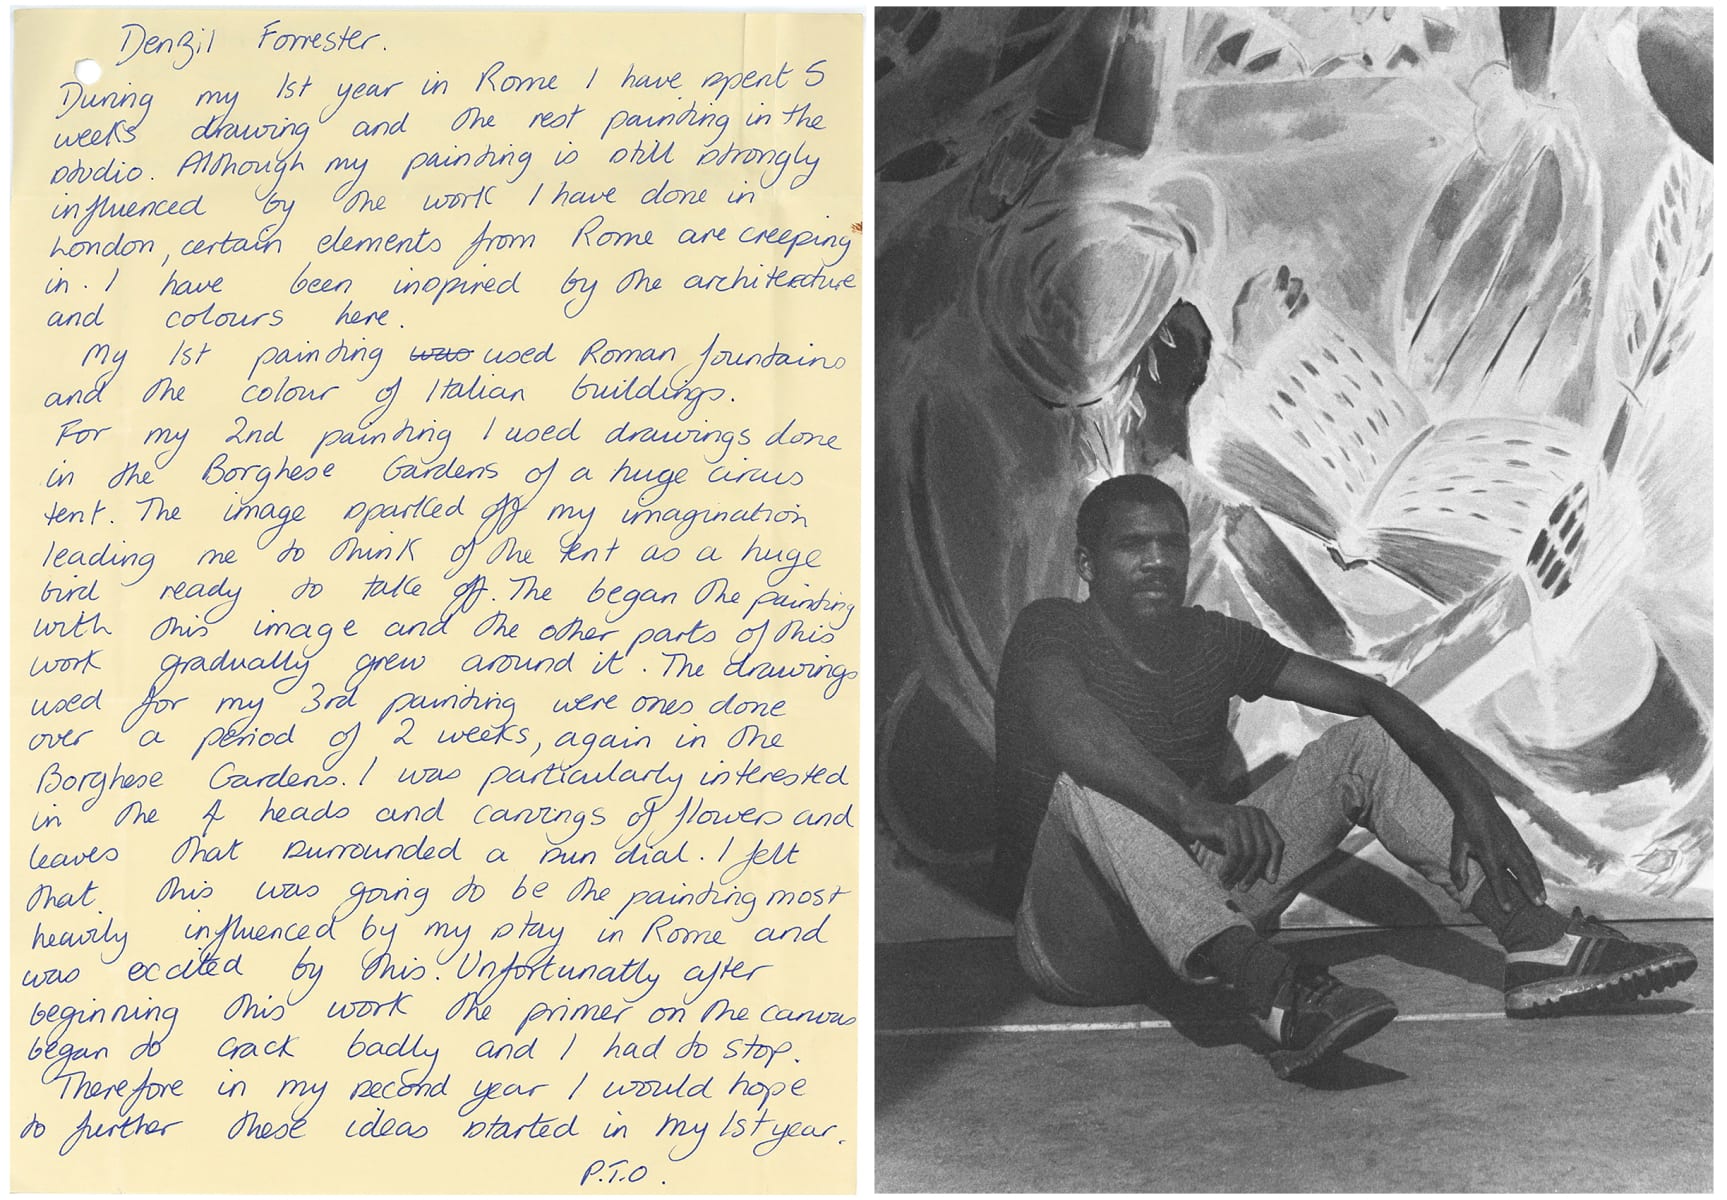 Denzil Forrester.
During my 1st year in Rome I have spent 5
weeks drawing and the rest painting in the
studio. Although my painting is still strongly
influenced by the work I have done in
London, certain elements from Rome are creeping
in. I have been inspired by the architecture
and colours here.
My 1st painting was used Roman fountains
and the colour of Italian buildings.
For my 2nd painting I used drawings done
in the Borghese Gardens of a huge circus
tent. The image sparked off my imagination
leading me to think of the tent as a huge
bird ready to take off. The began the painting
with this image and the other parts of this
work gradually grew around it. The drawings
used for my 3rd painting were ones done
over a period of 2 weeks, again in the
Borghese Gardens. I was particularly interested
in the 4 heads and carvings of flowers and
leaves that surrounded a sun dial. I felt
that this was going to be the painting most
heavily influenced by my stay in Rome and
was excited by this. Unfortunatly after
beginning this work the primer on the canvas
began to crack badly and I had to stop.
Therefore in my second year I would hope
to further these ideas started in my 1st year.
P.T.O.